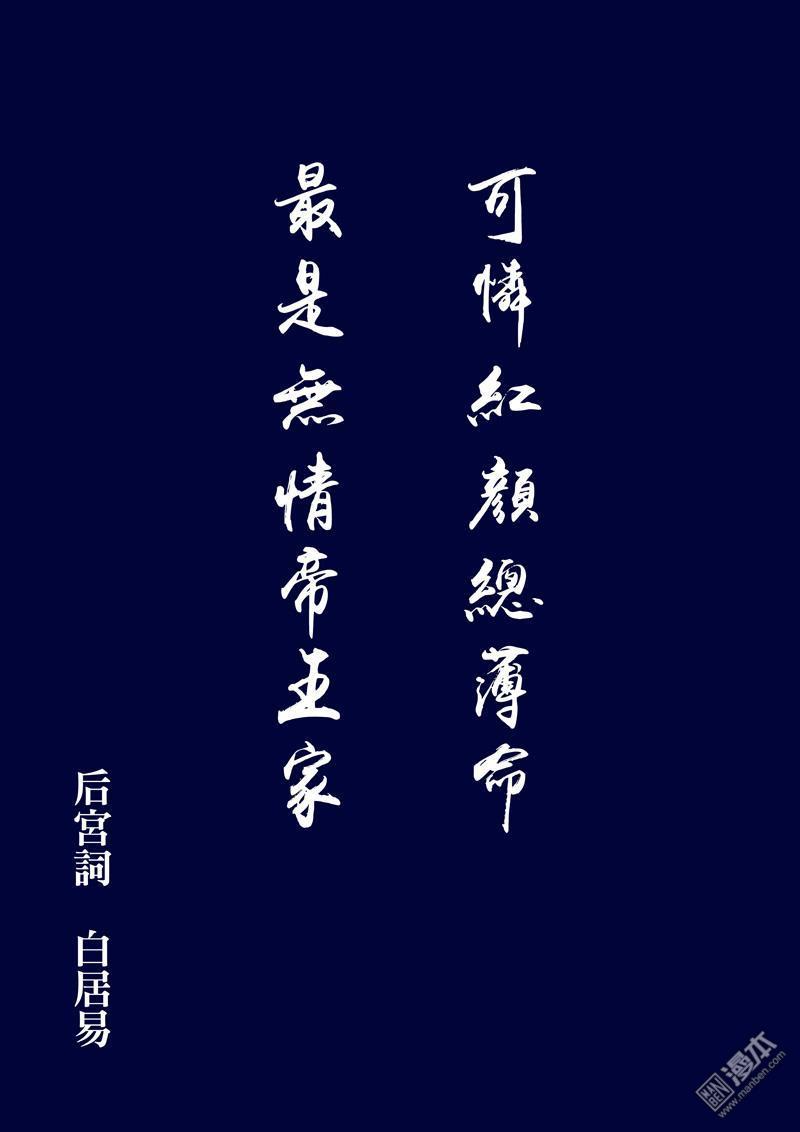 可憐紅顏總薄命
最是無情帝王家
后宮詞　白居易
MANBEN 漫本
www.manben.com